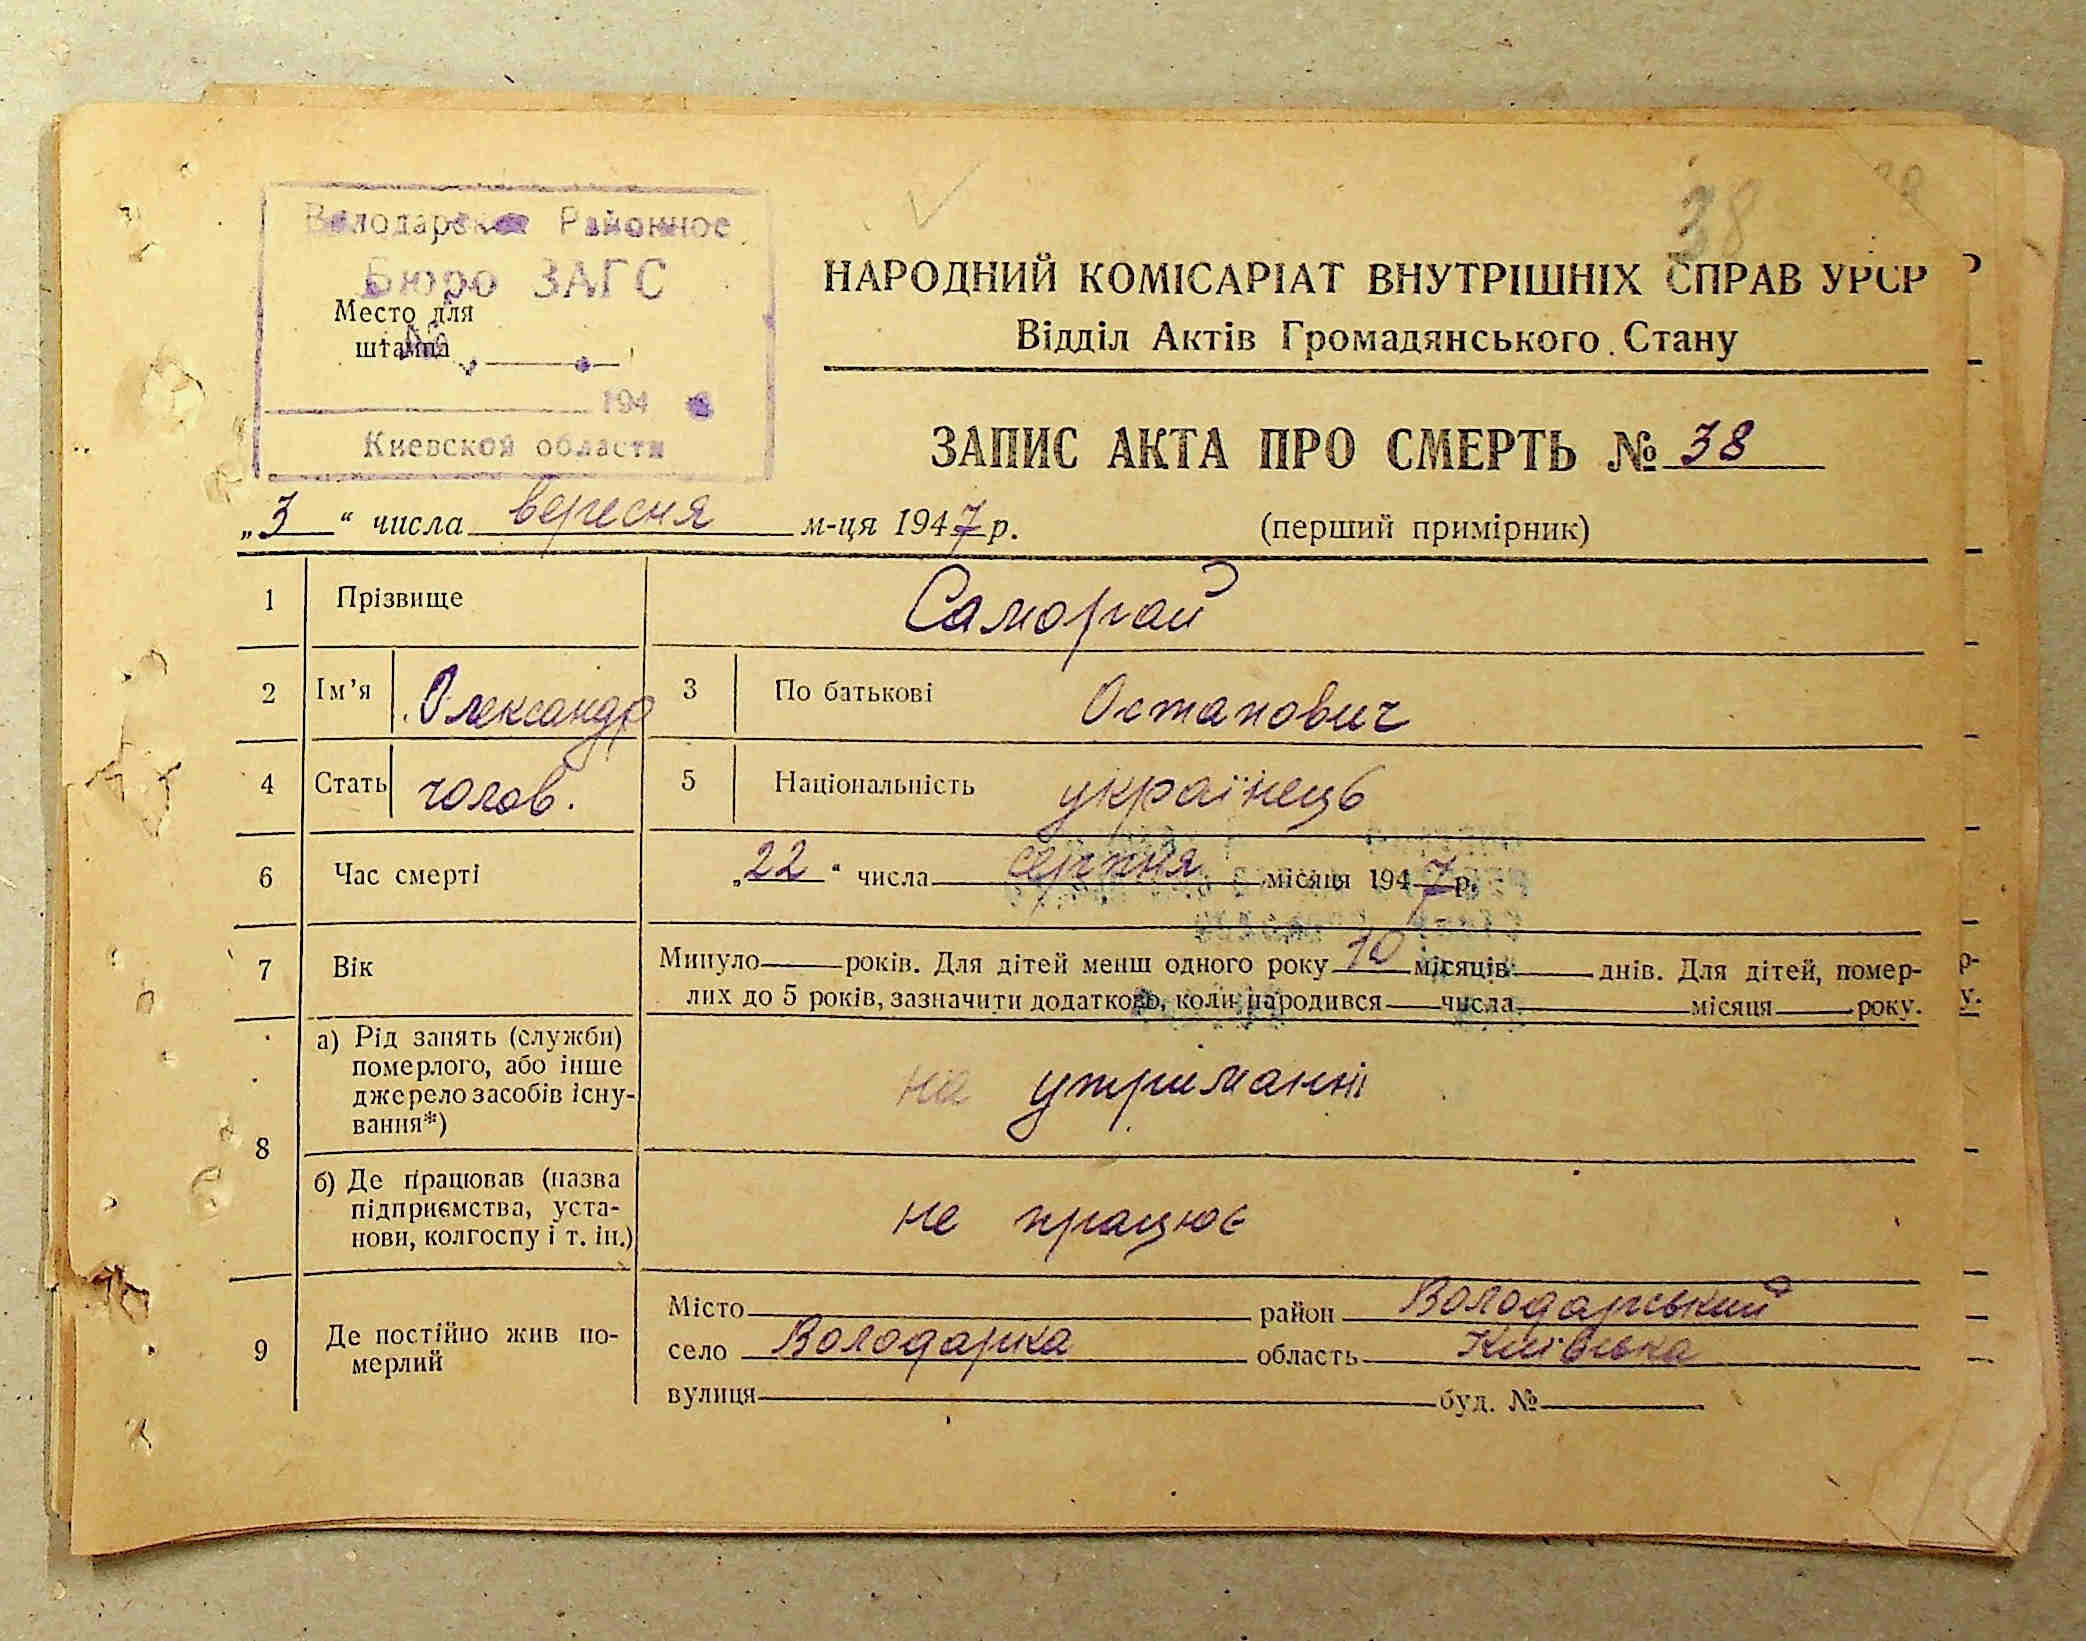 38
Володарское Районное
Бюро ЗАГС
Место для
штампа
194
Киевской области
НАРОДНИЙ КОМІСАРІАТ ВНУТРІШНІХ СПРАВ УРСР
Відділ Актів Громадянського Стану
ЗАПИС АКТА ПРО СМЕРТЬ № 38
„3“ числа вересня м-ця 1947 р. (перший примірник)
1 Прізвище Саморай
2 Ім’я Олександр 3 По батькові Остапович
4 Стать чолов. 5 Національність українець
6 Час смерті „22“ числа серпня місяця 1947 р.
7 Вік Минуло — років. Для дітей менш одного року 10 місяців — днів. Для дітей, помер-
лих до 5 років, зазначити додатково, коли народився — числа — місяця — року.
8 а) Рід занять (служби)
померлого, або інше
джерело засобів існу-
вання*) на утриманні
б) Де працював (назва
підприємства, уста-
нови, колгоспу і т. ін.) не працює
9 Де постійно жив по-
мерлий
Місто район Володарський
село Володарка область Київська
вулиця буд. №